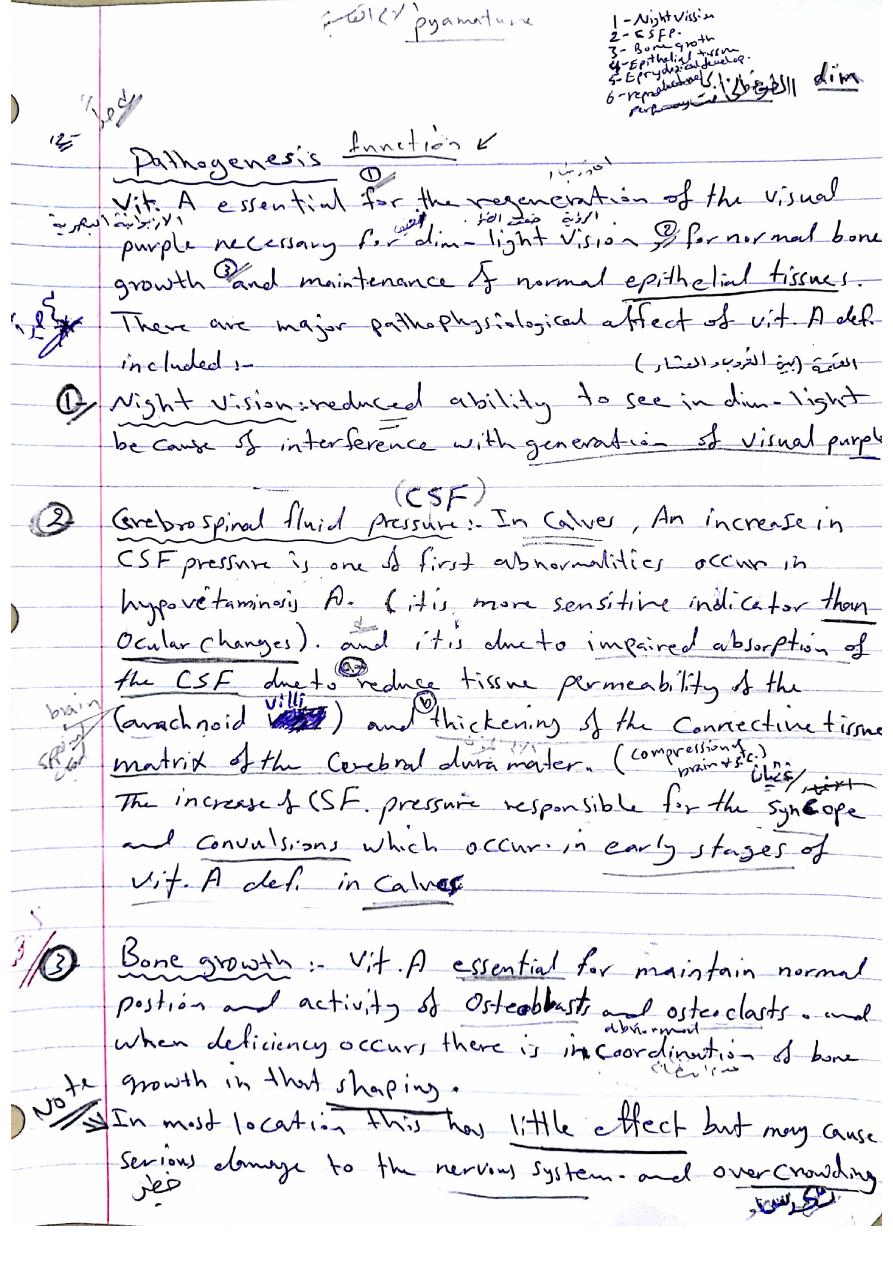 pyamature
1-Night Vission
2- CSFP.
3- Bone groth
4-Epithelial tissue
5-Epryological develop.
6-reproductive
dim
Pathogenesis function
①
Vit. A essential for the regeneration of the visual
الارجوانية البصرية ضعف الضوء الرؤية
purple necessary for dim-light vision ② for normal bone
growth ③ and maintenance of normal epithelial tissues.
There are major pathophysiological affect of vit. A def.
included :-
① Night vision: reduced ability to see in dim-light
because of interference with generation of visual purple
(CSF)
② Cerebrospinal fluid pressure:- In Calves, An increase in
CSF pressure is one of first abnormalities occur in
hypovetaminosis A. (it is more sensitive indicator than
Ocular changes). and it is due to impaired absorption of
the CSF due to a- reduce tissue permeability of the
brain
spinal cord
(arachnoid villi) and b thickening of the Connective tissue
matrix of the Cerebral dura mater. (compression of
brain & s.c.)
The increase of CSF. pressure responsible for the syncope
and convulsions which occur in early stages of
vit. A def. in Calves
③ Bone growth :- Vit. A essential for maintain normal
postion and activity of Osteoblasts and osteoclasts. and
abnormal
when deficiency occurs there is incoordination of bone
growth in that shaping.
Note
In most location this has little effect but may cause
serious damage to the nervous system. and overcrowding
خطر